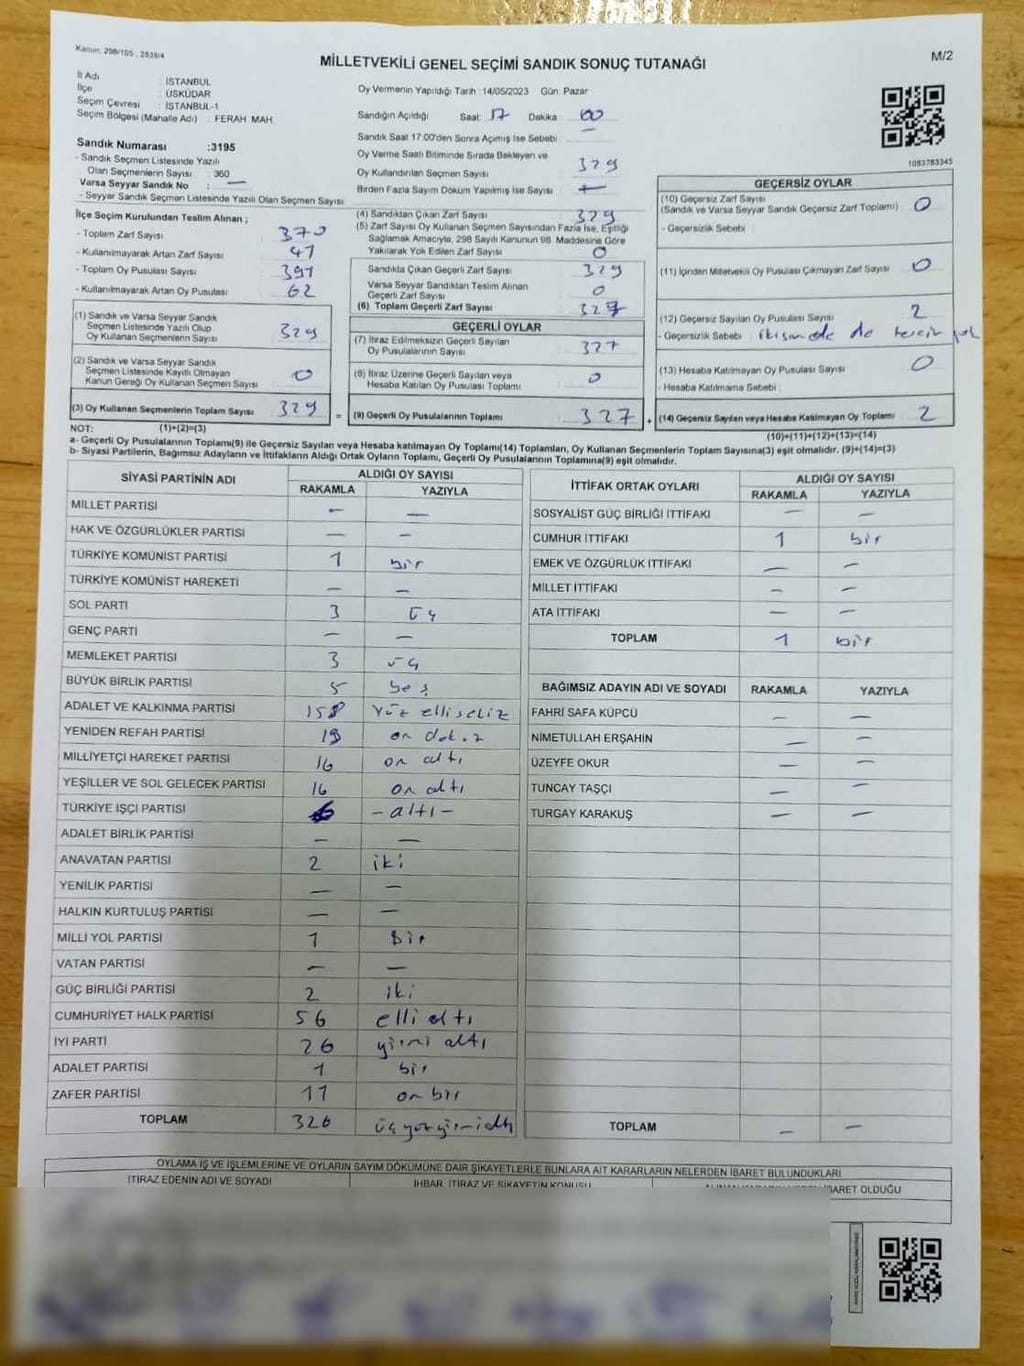 Kanun: 298/105, 2839/4
M/2
MİLLETVEKİLİ GENEL SEÇİMİ SANDIK SONUÇ TUTANAĞI
İl Adı : İSTANBUL
İlçe : ÜSKÜDAR
Seçim Çevresi : İSTANBUL-1
Seçim Bölgesi (Mahalle Adı) : FERAH MAH.
Oy Vermenin Yapıldığı Tarih :14/05/2023 Gün: Pazar
Sandığın Açıldığı Saat: 17 Dakika: 00
Sandık Saat 17:00'den Sonra Açımış İse Sebebi : —
Oy Verme Saati Bitiminde Sırada Bekleyen ve
Oy Kullandırılan Seçmen Sayısı : 329
Birden Fazla Sayım Döküm Yapılmış İse Sayısı :
Sandık Numarası :3195
- Sandık Seçmen Listesinde Yazılı
Olan Seçmenlerin Sayısı : 360
Varsa Seyyar Sandık No : —
- Seyyar Sandık Seçmen Listesinde Yazılı Olan Seçmen Sayısı
İlçe Seçim Kurulundan Teslim Alınan ;
- Toplam Zarf Sayısı : 370
- Kullanılmayarak Artan Zarf Sayısı : 41
- Toplam Oy Pusulası Sayısı : 391
- Kullanılmayarak Artan Oy Pusulası : 62
(1) Sandık ve Varsa Seyyar Sandık
Seçmen Listesinde Yazılı Olup
Oy Kullanan Seçmenlerin Sayısı : 329
(2) Sandık ve Varsa Seyyar Sandık
Seçmen Listesinde Kayıtlı Olmayan
Kanun Gereği Oy Kullanan Seçmen Sayısı : 0
(3) Oy Kullanan Seçmenlerin Toplam Sayısı : 329
(4) Sandıktan Çıkan Zarf Sayısı : 329
(5) Zarf Sayısı Oy Kullanan Seçmen Sayısından Fazla İse, Eşitliği
Sağlamak Amacıyla, 298 Sayılı Kanunun 98. Maddesine Göre
Yakılarak Yok Edilen Zarf Sayısı : 0
Sandıkta Çıkan Geçerli Zarf Sayısı : 329
Varsa Seyyar Sandıktan Teslim Alınan
Geçerli Zarf Sayısı : 0
(6) Toplam Geçerli Zarf Sayısı :
GEÇERLİ OYLAR
(7) İtiraz Edilmeksizin Geçerli Sayılan
Oy Pusulalarının Sayısı : 327
(8) İtiraz Üzerine Geçerli Sayılan veya
Hesaba Katılan Oy Pusulası Toplamı : 0
= (9) Geçerli Oy Pusulalarının Toplamı : 327 +
1083783345
GEÇERSİZ OYLAR
(10) Geçersiz Zarf Sayısı
(Sandık ve Varsa Seyyar Sandık Geçersiz Zarf Toplamı) : 0
- Geçersizlik Sebebi :
(11) İçinden Milletvekili Oy Pusulası Çıkmayan Zarf Sayısı : 0
(12) Geçersiz Sayılan Oy Pusulası Sayısı : 2
- Geçersizlik Sebebi : ikisinde de tercih yok
(13) Hesaba Katılmayan Oy Pusulası Sayısı : 0
- Hesaba Katılmama Sebebi :
(14) Geçersiz Sayılan veya Hesaba Katılmayan Oy Toplamı : 2
NOT: (1)+(2)=(3)
(10)+(11)+(12)+(13)=(14)
a- Geçerli Oy Pusulalarının Toplamı(9) ile Geçersiz Sayılan veya Hesaba katılmayan Oy Toplamı(14) Toplamları, Oy Kullanan Seçmenlerin Toplam Sayısına(3) eşit olmalıdır. (9)+(14)=(3)
b- Siyasi Partilerin, Bağımsız Adayların ve İttifakların Aldığı Ortak Oyların Toplamı, Geçerli Oy Pusulalarının Toplamına(9) eşit olmalıdır.
SİYASİ PARTİNİN ADI ALDIĞI OY SAYISI
RAKAMLA YAZIYLA
MİLLET PARTİSİ — —
HAK VE ÖZGÜRLÜKLER PARTİSİ — —
TÜRKİYE KOMÜNİST PARTİSİ 1 bir
TÜRKİYE KOMÜNİST HAREKETİ — —
SOL PARTİ 3 üç
GENÇ PARTİ — —
MEMLEKET PARTİSİ 3 üç
BÜYÜK BİRLİK PARTİSİ 5 beş
ADALET VE KALKINMA PARTİSİ 158 Yüz ellisekiz
YENİDEN REFAH PARTİSİ 19 on dokuz
MİLLİYETÇİ HAREKET PARTİSİ 16 on altı
YEŞİLLER VE SOL GELECEK PARTİSİ 16 on altı
TÜRKİYE İŞÇİ PARTİSİ 6 -altı-
ADALET BİRLİK PARTİSİ — —
ANAVATAN PARTİSİ 2 iki
YENİLİK PARTİSİ — —
HALKIN KURTULUŞ PARTİSİ — —
MİLLİ YOL PARTİSİ 1 Bir
VATAN PARTİSİ — —
GÜÇ BİRLİĞİ PARTİSİ 2 iki
CUMHURİYET HALK PARTİSİ 56 elli altı
İYİ PARTİ 26 yirmi altı
ADALET PARTİSİ 1 bir
ZAFER PARTİSİ 11 on bir
TOPLAM 326 üçyüzyirmialtı
İTTİFAK ORTAK OYLARI ALDIĞI OY SAYISI
RAKAMLA YAZIYLA
SOSYALİST GÜÇ BİRLİĞİ İTTİFAKI — —
CUMHUR İTTİFAKI 1 bir
EMEK VE ÖZGÜRLÜK İTTİFAKI — —
MİLLET İTTİFAKI — —
ATA İTTİFAKI — —
TOPLAM 1 bir
BAĞIMSIZ ADAYIN ADI VE SOYADI RAKAMLA YAZIYLA
FAHRİ SAFA KÜPCÜ — —
NİMETULLAH ERŞAHİN — —
ÜZEYFE OKUR — —
TUNCAY TAŞÇI — —
TURGAY KARAKUŞ — —
TOPLAM — —
OYLAMA İŞ VE İŞLEMLERİNE VE OYLARIN SAYIM DÖKÜMÜNE DAİR ŞİKAYETLERLE BUNLARA AİT KARARLARIN NELERDEN İBARET BULUNDUKLARI
İTİRAZ EDENİN ADI VE SOYADI İHBAR, İTİRAZ VE ŞİKAYETİN KONUSU İBARET OLDUĞU